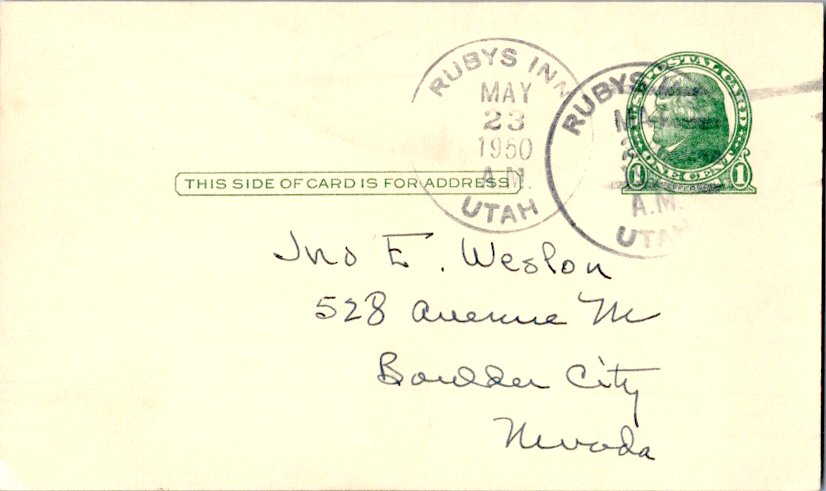 RUBYS INN
MAY
23
1950
A.M.
UTAH
RUBYS
A.M.
UTAH
U.S. POSTAL CARD
JEFFERSON
1 1
ONE CENT
THIS SIDE OF CARD IS FOR ADDRESS
Jno E. Weston
528 Avenue M
Boulder City
Nevada